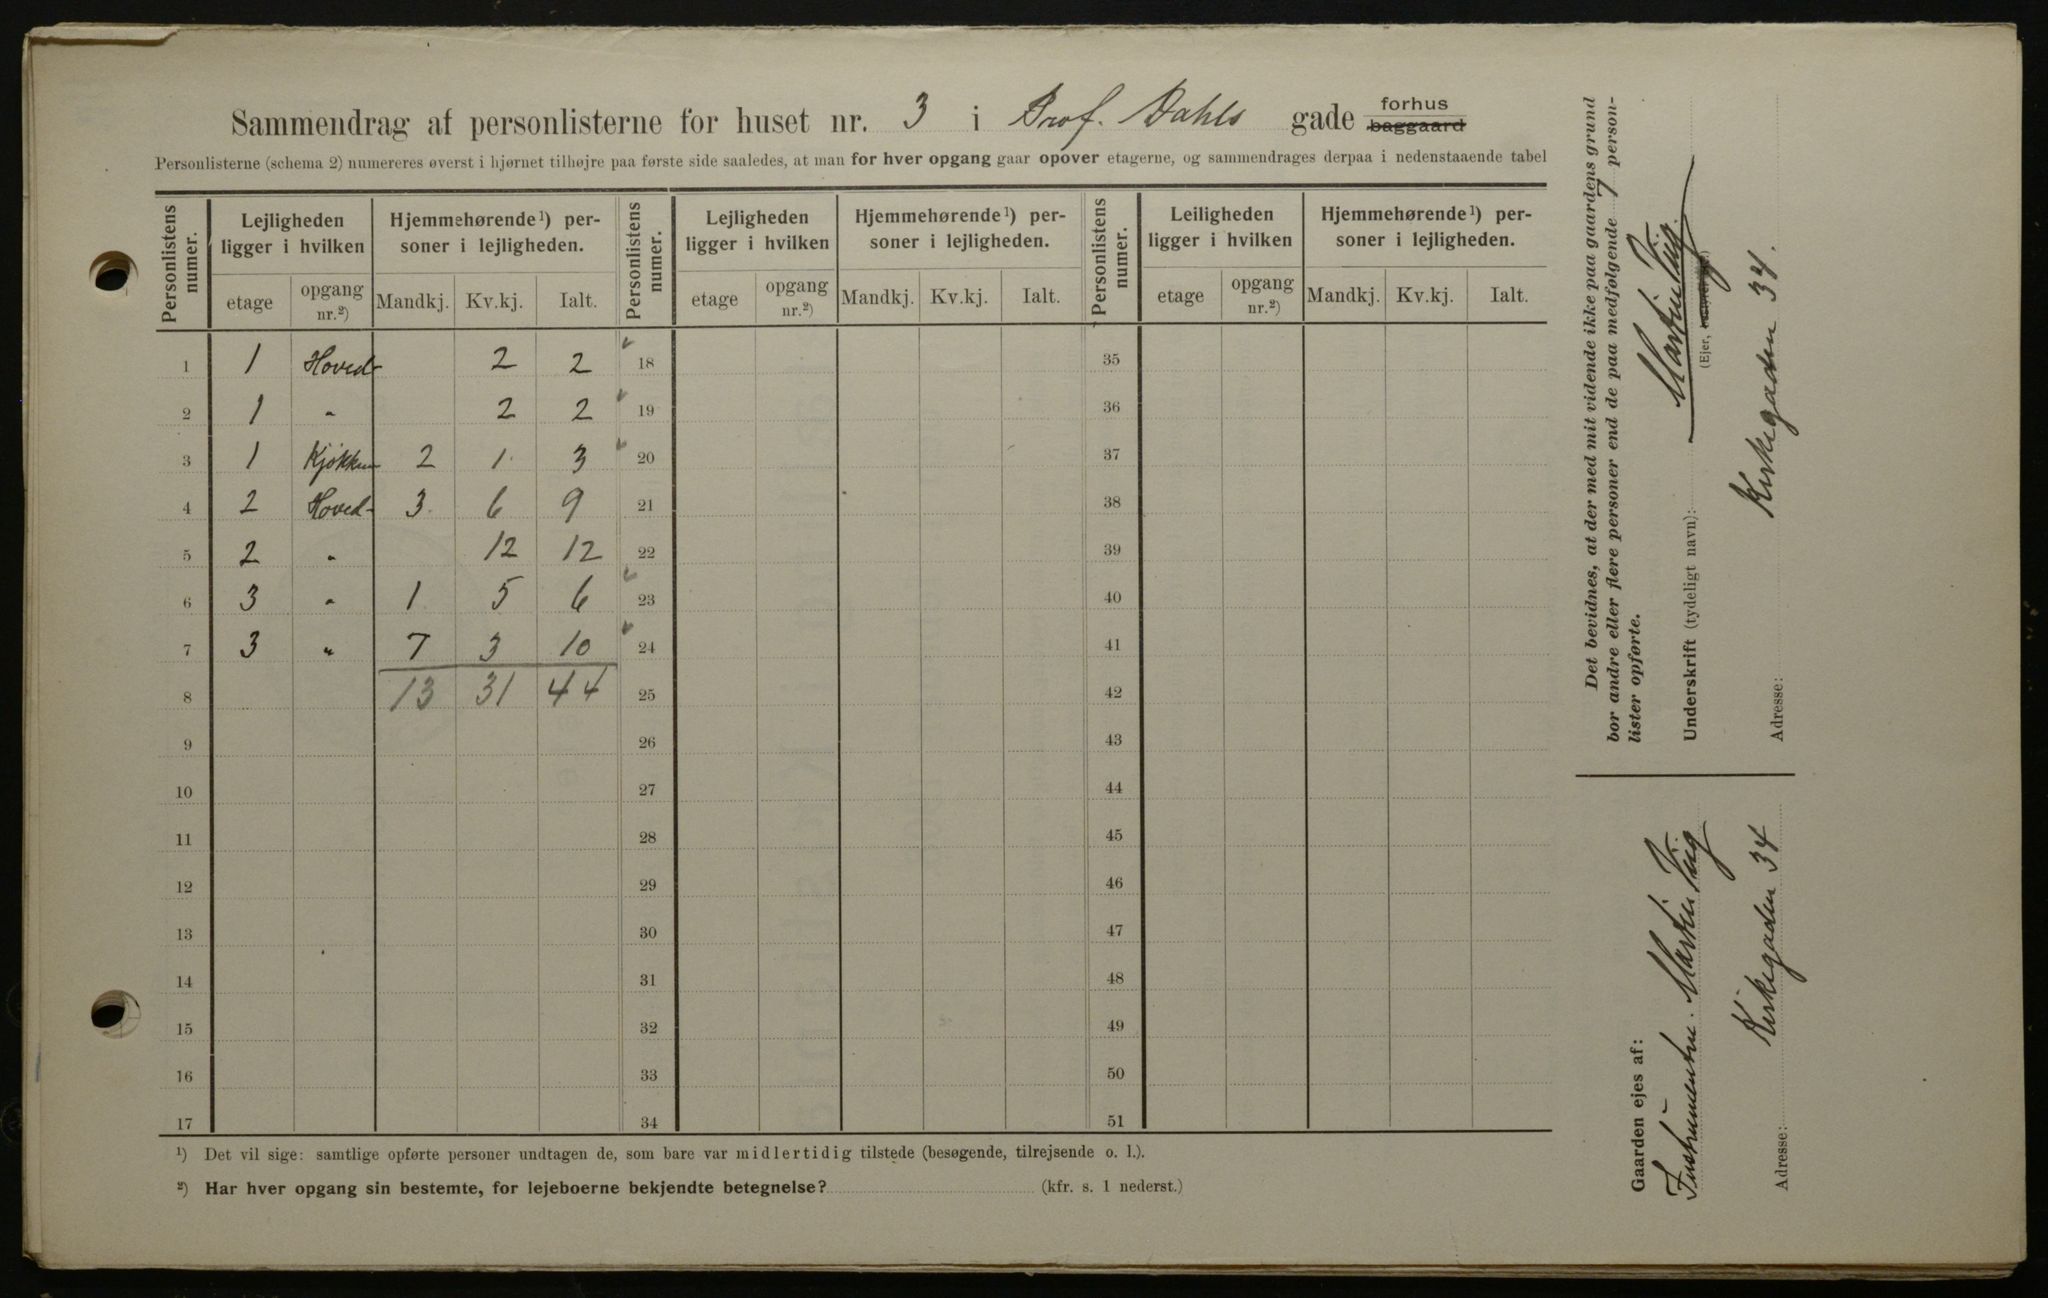 Sammendrag af personlisterne for huset nr. 3 i Prof. Dahls gade forhus baggaard
Personlisterne (schema 2) numereres øverst i hjørnet tilhøjre paa første side saaledes, at man for hver opgang gaar opover etagerne, og sammendrages derpaa i nedenstaaende tabel
Personlistens numer. Lejligheden ligger i hvilken Hjemmehørende¹) personer i lejligheden. Personlistens numer. Lejligheden ligger i hvilken Hjemmehørende¹) personer i lejligheden. Personlistens numer. Leiligheden ligger i hvilken Hjemmehørende¹) personer i lejligheden.
etage opgang nr.²) Mandkj. Kv.kj. Ialt. etage opgang nr.²) Mandkj. Kv.kj. Ialt. etage opgang nr.²) Mandkj. Kv.kj. Ialt.
1 1 Hoved- 2 2 18 35
2 1 " 2 2 19 36
3 1 Kjøkken 2 1 3 20 37
4 2 Hoved- 3 6 9 21 38
5 2 " 12 12 22 39
6 3 " 1 5 6 23 40
7 3 " 7 3 10 24 41
8 13 31 44 25 42
9 26 43
10 27 44
11 28 45
12 29 46
13 30 47
14 31 48
15 32 49
16 33 50
17 34 51
¹) Det vil sige: samtlige opførte personer undtagen de, som bare var midlertidig tilstede (besøgende, tilrejsende o. l.).
²) Har hver opgang sin bestemte, for lejeboerne bekjendte betegnelse? (kfr. s. 1 nederst.)
Det bevidnes, at der med mit vidende ikke paa gaardens grund
bor andre eller flere personer end de paa medfølgende 7 person-
lister opførte.
Underskrift (tydeligt navn):
(Ejer,
Adresse: Kirkegaden 34.
Gaarden ejes af:
Instrumentm. Martin
Adresse: Kirkegaden 34